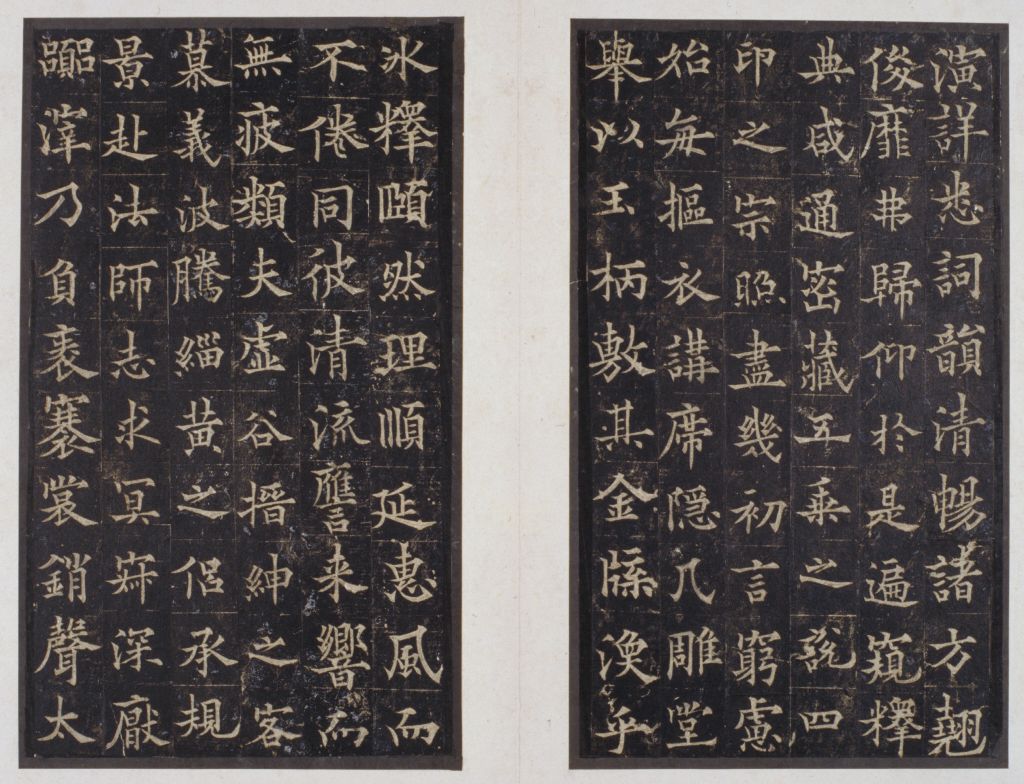 演詳悉詞韻清暢諸方翹
俊靡弗歸仰於是遍窺釋
典咸通密藏五乘之說四
印之宗照盡幾初言窮慮
始每摳衣講席隱几雕堂
舉以玉柄敷其金牒渙乎
冰釋頤然理順延惠風而
不倦同彼清流譍来響而
無疲類夫虛谷搢紳之客
慕義波騰緇黄之侶承規
景赴法師志求冥寂深厭
嚻滓乃負袠褰裳銷聲太